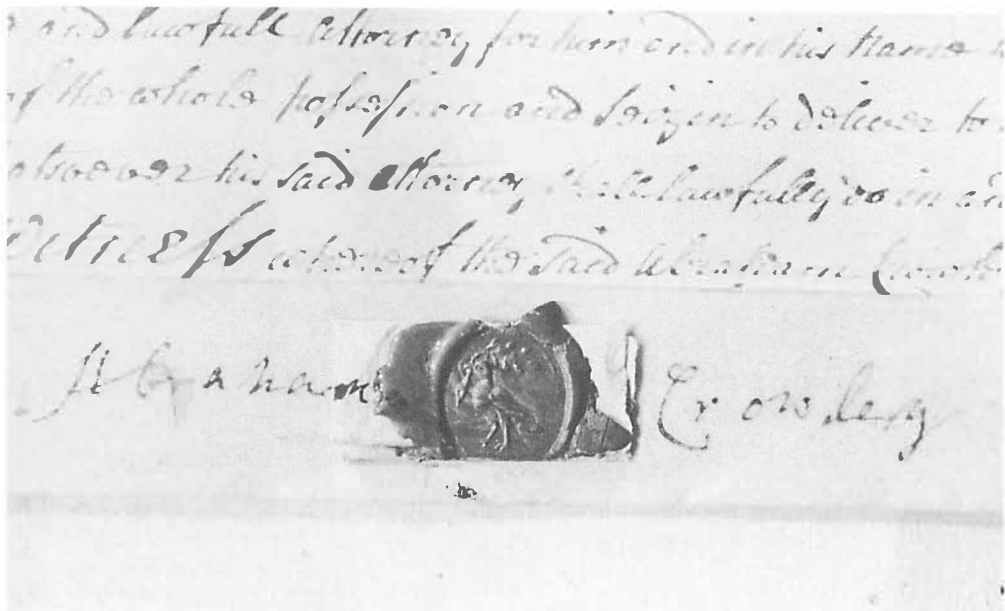 and lawfull attorney for him and in his Name
of the whole possession and Seizin to deliver to
his said attorney shall lawfully do in
Witness whereof the said Abraham Crowle
Abraham Crowley